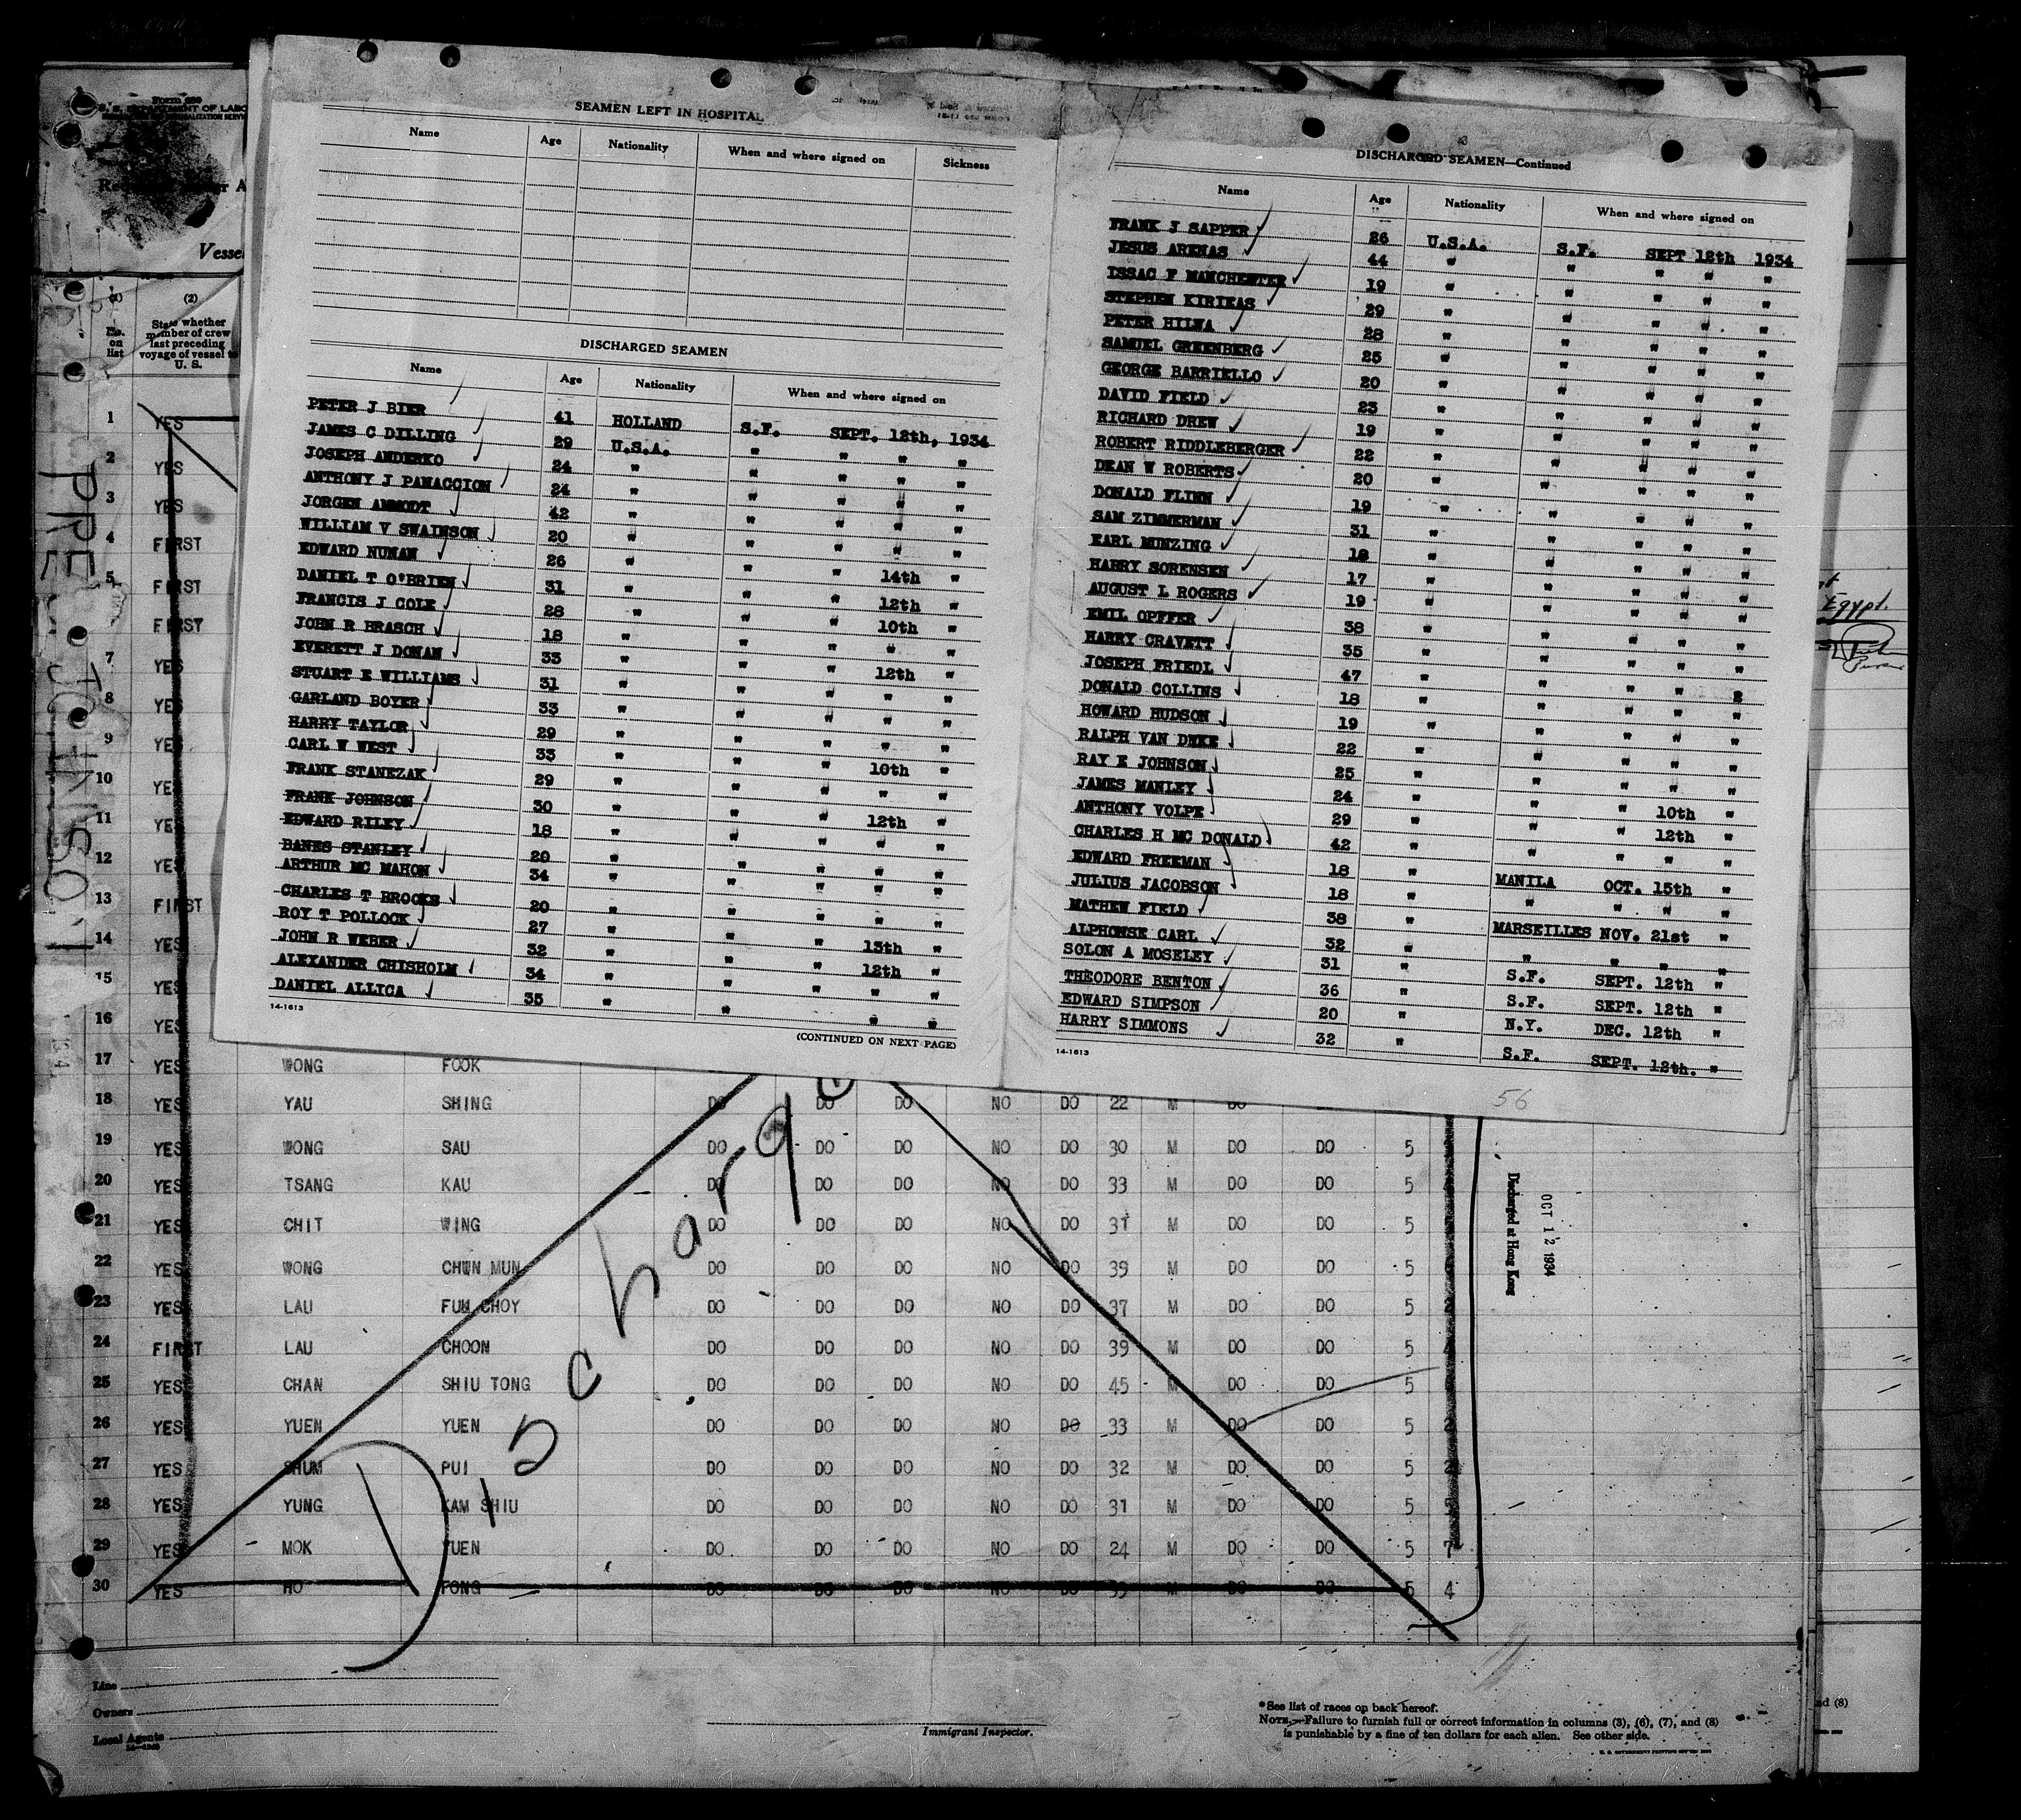 Form 680
U. S. DEPARTMENT OF LABO
Vesse
PRES JOHNSON
(1) (2)
No. on list
State whether member of crew last preceding voyage of vessel to U. S.
1 YES
2 YES
3 YES
4 FIRST
5 FIRST
FIRST
7 YES
8 YES
9 YES
10 YES
11 YES
12 YES
13 FIRST
14 YES
15 YES
16 YES
SEAMEN LEFT IN HOSPITAL
Name Age Nationality When and where signed on Sickness
DISCHARGED SEAMEN
Name Age Nationality When and where signed on
PETER J BIER 41 HOLLAND S.F. SEPT. 12th, 1934
JAMES C DILLING 29 U.S.A. " " " "
JOSEPH ANDERKO 24 " " " " "
ANTHONY J PANACCION 24 " " " " "
JORGEN AMMODT 42 " " " " "
WILLIAM V SWAINSON 20 " " " " "
EDWARD NUMAN 26 " " " 14th "
DANIEL T O'BRIEN 31 " " " 12th "
FRANCIS J COLE 28 " " " 10th "
JOHN R BRASCH 18 " " " " "
EVERETT J DONAN 33 " " " 12th "
STUART E WILLIAMS 31 " " " " "
GARLAND BOYER 33 " " " " "
HARRY TAYLOR 29 " " " " "
CARL W WEST 33 " " " 10th "
FRANK STANEZAK 29 " " " " "
FRANK JOHNSON 30 " " " 12th "
EDWARD RILEY 18 " " " " "
BANES STANLEY 20 " " " " "
ARTHUR MC MAHON 34 " " " " "
CHARLES T BROOKS 20 " " " " "
ROY T POLLOCK 27 " " " 13th "
JOHN R WEBER 32 " " " 12th "
ALEXANDER CHISHOLM 34 " " " " "
DANIEL ALLICA 35 " " " "
14-1613
(CONTINUED ON NEXT PAGE)
DISCHARGED SEAMEN—Continued
Name Age Nationality When and where signed on
FRANK J SAPPER 26 U.S.A. S.F. SEPT 12th 1934
JESUS ARENAS 44 " " " " "
ISSAC F MANCHESTER 19 " " " " "
STEPHEN KIRIKAS 29 " " " " "
PETER HILWA 28 " " " " "
SAMUEL GREENBERG 25 " " " " "
GEORGE BARRIELLO 20 " " " " "
DAVID FIELD 23 " " " " "
RICHARD DREW 19 " " " " "
ROBERT RIDDLEBERGER 22 " " " " "
DEAN W ROBERTS 20 " " " " "
DONALD FLINN 19 " " " " "
SAM ZIMMERMAN 31 " " " " "
KARL MUNZING 18 " " " " "
HARRY SORENSEN 17 " " " " "
AUGUST L ROGERS 19 " " " " "
EMIL OPFFER 38 " " " " "
HARRY CRAVETT 35 " " " " "
JOSEPH FRIEDL 47 " " " "
DONALD COLLINS 18 " " " " "
HOWARD HUDSON 19 " " " " "
RALPH VAN DEKE 22 " " " " "
RAY E JOHNSON 25 " " " " "
JAMES MANLEY 24 " " " 10th "
ANTHONY VOLPE 29 " " " 12th "
CHARLES H MC DONALD 42 " " " " "
EDWARD FREEMAN 18 " MANILA OCT. 15th "
JULIUS JACOBSON 18 " " " " "
MATHEW FIELD 38 " MARSEILLES NOV. 21st "
ALPHONSE CARL 32 " " " " "
SOLON A MOSELEY 31 " S.F. SEPT. 12th "
THEODORE BENTON 36 " S.F. SEPT. 12th "
EDWARD SIMPSON 20 " N.Y. DEC. 12th "
HARRY SIMMONS 32 " S.F. SEPT. 12th. "
14-1613
56
Egypt.
17 YES WONG FOOK
18 YES YAU SHING DO DO DO NO DO 22 M DO
19 YES WONG SAU DO DO DO NO DO 30 M DO DO 5
20 YES TSANG KAU DO DO DO NO DO 33 M DO DO 5
21 YES CHIT WING DO DO DO NO DO 31 M DO DO 5
22 YES WONG CHUN MUN DO DO DO NO DO 39 M DO DO 5
23 YES LAU FUN CHOY DO DO DO NO DO 37 M DO DO 5 2
24 FIRST LAU CHOON DO DO DO NO DO 39 M DO DO 5 4
25 YES CHAN SHIU TONG DO DO DO NO DO 45 M DO DO 5
26 YES YUEN YUEN DO DO DO NO DO 33 M DO DO 5 2
27 YES SHUM PUI DO DO DO NO DO 32 M DO DO 5 2
28 YES YUNG KAM SHIU DO DO DO NO DO 31 M DO DO 5
29 YES MOK YUEN DO DO DO NO DO 24 M DO DO 5 7
30 YES HO TONG DO DO DO NO DO 35 M DO DO 5 4
Discharge
Discharged at Hong Kong
OCT 12 1934
Line
Owners
Local Agents
Immigrant Inspector.
*See list of races on back hereof.
NOTE.—Failure to furnish full or correct information in columns (3), (6), (7), and (8)
is punishable by a fine of ten dollars for each alien. See other side.
nd (8)